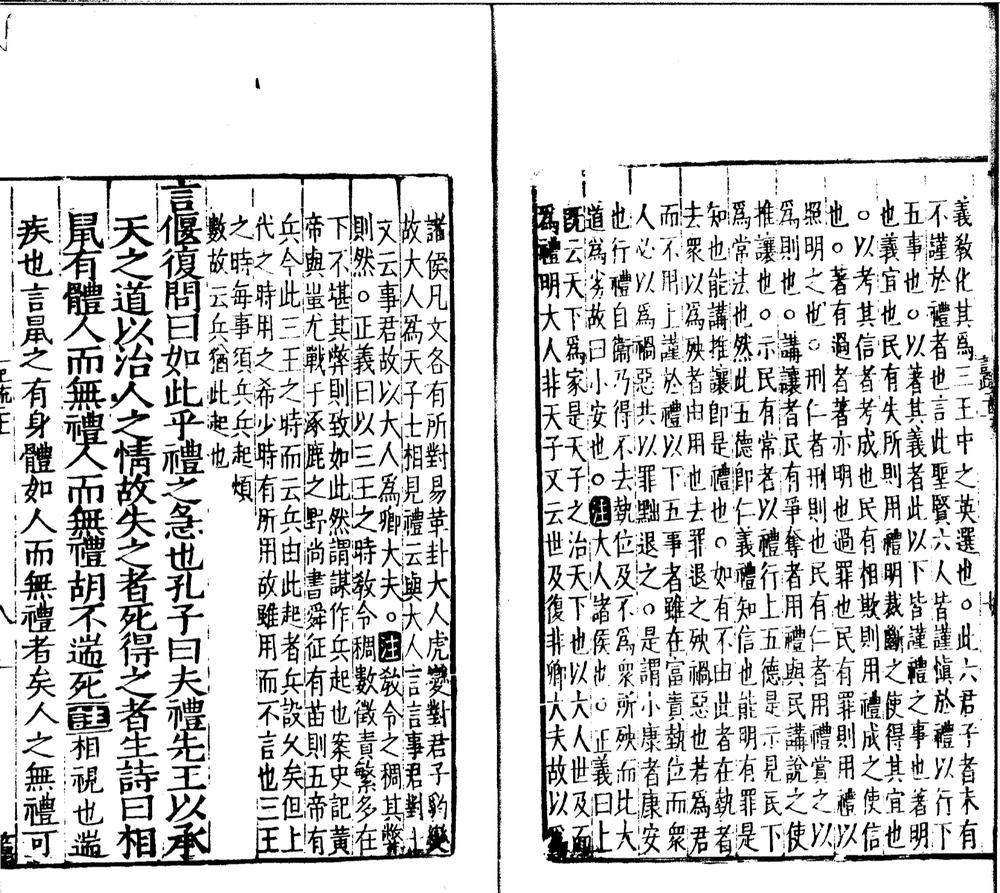 義教化其為三王中之英選也○此六君子者未有
不謹於禮者也言此聖賢六人皆謹慎於禮以行下
五事也○以著其義者此以下皆謹禮之事也著明
也義宜也民有失所則用禮明裁斷之使得其宜也
○以考其信者考成也民有相欺則用禮成之使信
也○著有過者著亦明也過罪也民有罪則用禮以
照明之也○刑仁者刑則也民有仁者用禮賞之以
為則也○講讓者民有爭奪者用禮與民講說之使
推讓也○示民有常者以禮行上五德是示見民下
為常法也然此五德即仁義禮知信也能明有罪是
知也能講推讓即是禮也○如有不由此者在埶者
去衆以為殃者由用也去罪退之殃禍惡也若為君
而不用上謹於禮以下五事者雖在富貴埶位而衆
人必以為禍惡共以罪黜退之○是謂小康者康安
也行禮自衞乃得不去埶位及不為衆所殃而比大
道為劣故曰小安也○注大人諸侯也○正義曰上
既云天下為家是天子之治天下也以大人世及而
為禮明大人非天子又云世及復非卿大夫故以為
諸侯凡文各有所對易革卦大人虎變對君子豹變
故大人為天子士相見禮云與大人言言事君對士
文云事君故以大人為卿大夫○注教令之稠其弊
則然○正義曰以三王之時教令稠數徵責繁多在
下不堪其弊則致如此然謂謀作兵起也案史記黃
帝與蚩尤戰于涿鹿之野尚書舜征有苗則五帝有
兵今此三王之時而云兵由此起者兵設久矣但上
代之時用之希少時有所用故雖用而不言也三王
之時每事須兵兵起煩
數故云兵猶此起也
言偃復問曰如此乎禮之急也孔子曰夫禮先王以承
天之道以治人之情故失之者死得之者生詩曰相
鼠有體人而無禮人而無禮胡不遄死註相視也遄
疾也言鼠之有身體如人而無禮者矣人之無禮可